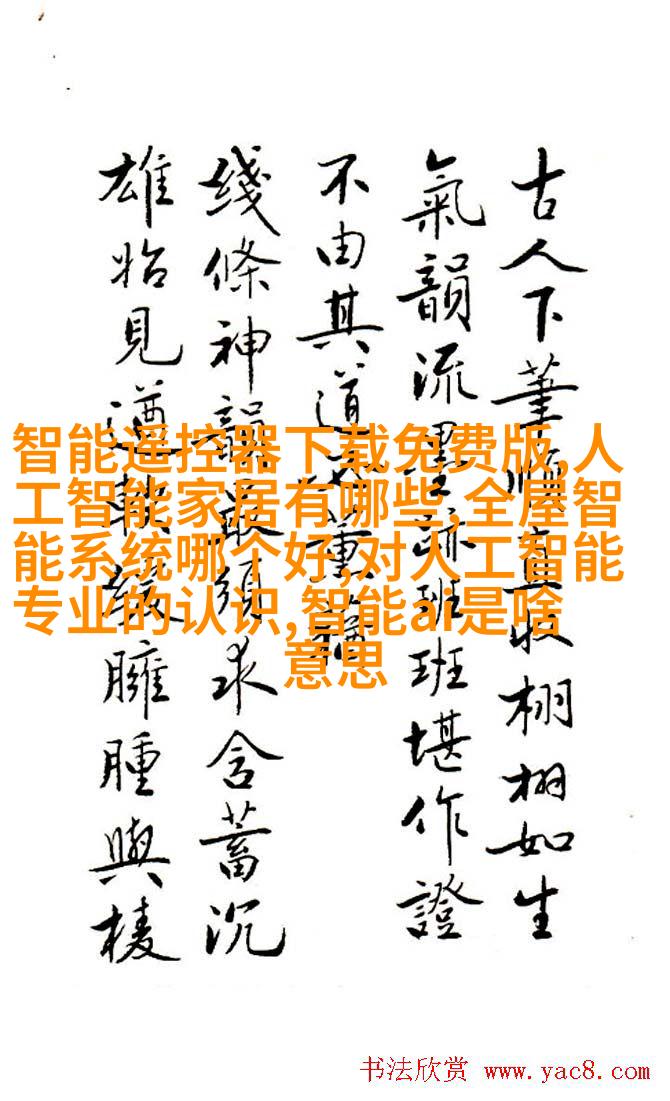 古人下筆栩栩如生
氣韻流墨跡班班堪作證
不由其道
綫條神韻最須求含蓄沉
雄始見遒臃腫與棱
智能遥控器下载免费版,人
工智能家居有哪些,全屋智
能系统哪个好,对人工智能
专业的认识,智能ai是啥
意思
书法欣赏 www.yac8.com